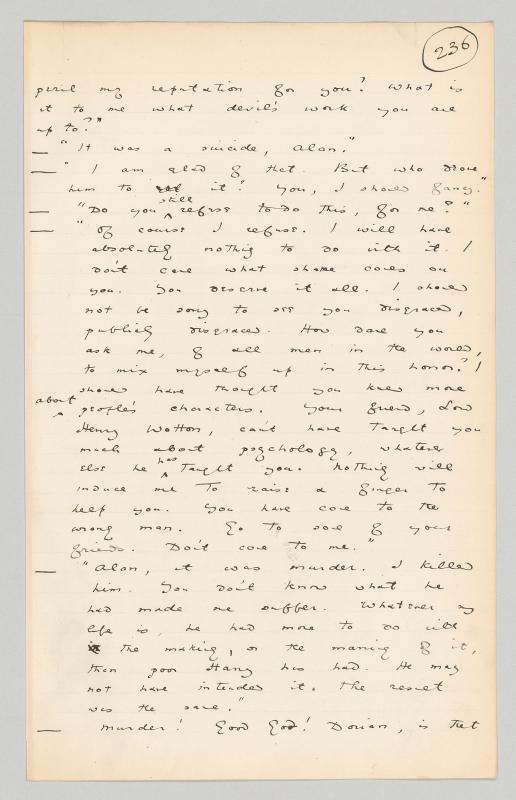 236
peril my reputation for you? What is
it to me what devil's work you are
up to?"
— "It was a suicide, Alan."
— "I am glad of that. But who drove
him to it? You, I should fancy."
still
— "Do you refuse to do this, for me?"
— "Of course I refuse. I will have
absolutely nothing to do with it. I
don't care what shame comes on
you. You deserve it all. I should
not be sorry to see you disgraced,
publicly disgraced. How dare you
ask me, of all men in the world,
to mix myself up in this horror? I
should have thought you knew more
about people's characters. Your friend, Lord
Henry Wotton, can't have taught you
much about psychology, whatever
else he has taught you. Nothing will
induce me to raise a finger to
help you. You have come to the
wrong man. Go to some of your
friends. Don't come to me."
— "Alan, it was murder. I killed
him. You don't know what he
had made me suffer. Whatever my
life is, he had more to do with
the making, or the marring of it,
than poor Harry has had. He may
not have intended it. The result
was the same."
— Murder! Good God! Dorian, is that